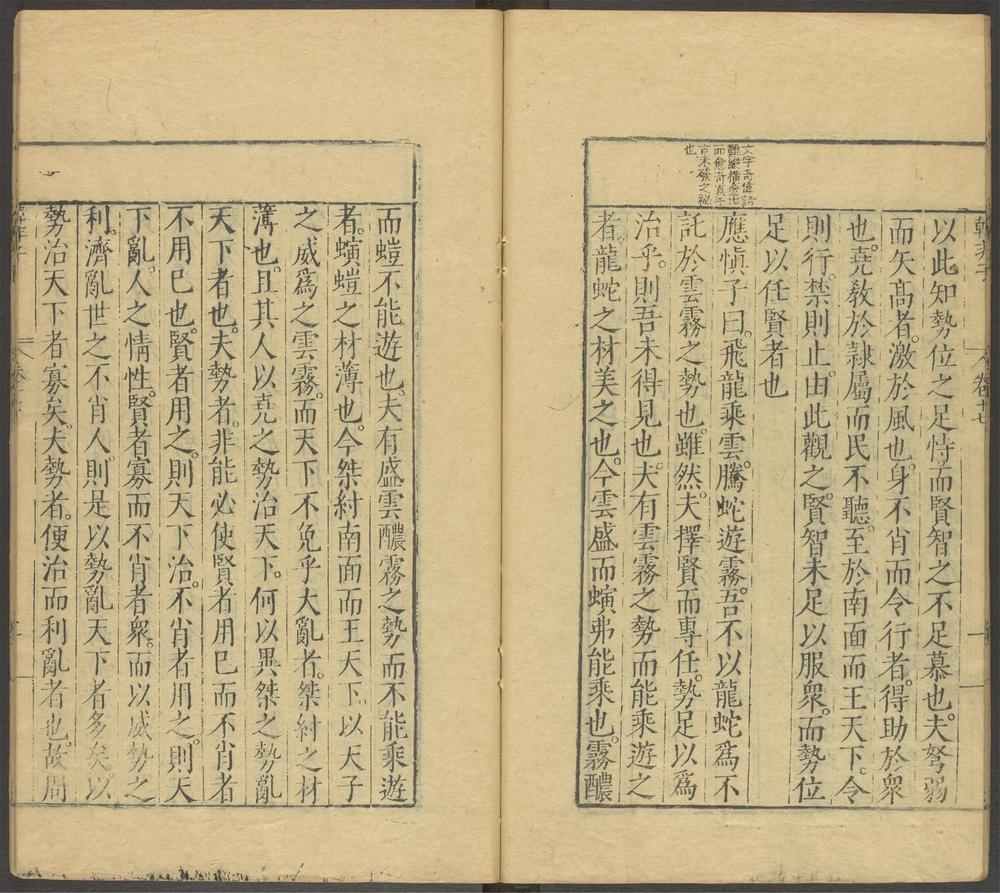 韓非子
卷十七
一
以此知勢位之足恃而賢智之不足慕也。夫弩弱
而矢高者。激於風也。身不肖而令行者。得助於衆
也。堯教於隷屬而民不聽。至於南面而王天下。令
則行。禁則止。由此觀之。賢智未足以服衆。而勢位
足以任賢者也
文字奇偉諸
而愈奇眞千
古未發之祕
也
應愼子曰。飛龍乘雲。騰蛇遊霧。吾不以龍蛇爲不
託於雲霧之勢也。雖然。夫擇賢而專任。勢足以爲
治乎。則吾未得見也。夫有雲霧之勢而能乘遊之
者。龍蛇之材美之也。今雲盛而螾弗能乘也。霧醲
而螘不能遊也。夫有盛雲醲霧之勢而不能乘遊
者。螾螘之材薄也。今桀紂南面而王天下。以天子
之威爲之雲霧。而天下不免乎大亂者。桀紂之材
薄也。且其人以堯之勢治天下。何以異桀之勢亂
天下者也。夫勢者。非能必使賢者用已而不肖者
不用已也。賢者用之。則天下治。不肖者用之。則天
下亂。人之情性。賢者寡而不肖者衆。而以威勢之
利。濟亂世之不肖人。則是以勢亂天下者多矣。以
勢治天下者寡矣。夫勢者。便治而利亂者也。故周